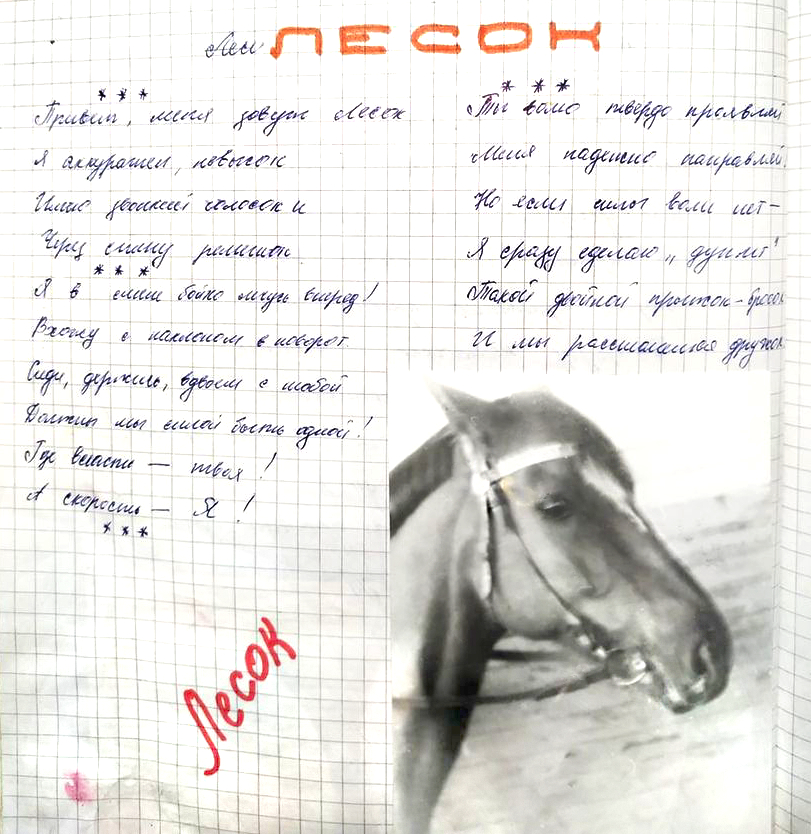 Лесо ЛЕСОК
* * *
Привет, меня зовут Лесок
Я аккуратен, невысок
Имею звонкий голосок и
Через спину ремешок
* * *
Я в смене бойко мчусь вперед!
Вхожу с наклоном в поворот
Сиди, держись, вдвоем с тобой
Должны мы силой быть одной!
Где власть — твоя!
А скорость — Я!
* * *
* * *
Ты волю твердо проявляй
Меня надежно направляй.
Но если силы воли нет —
Я сразу сделаю „дуплет"
Такой двойной прыжок-бросок
И мы расстанемся дружок.
Лесок